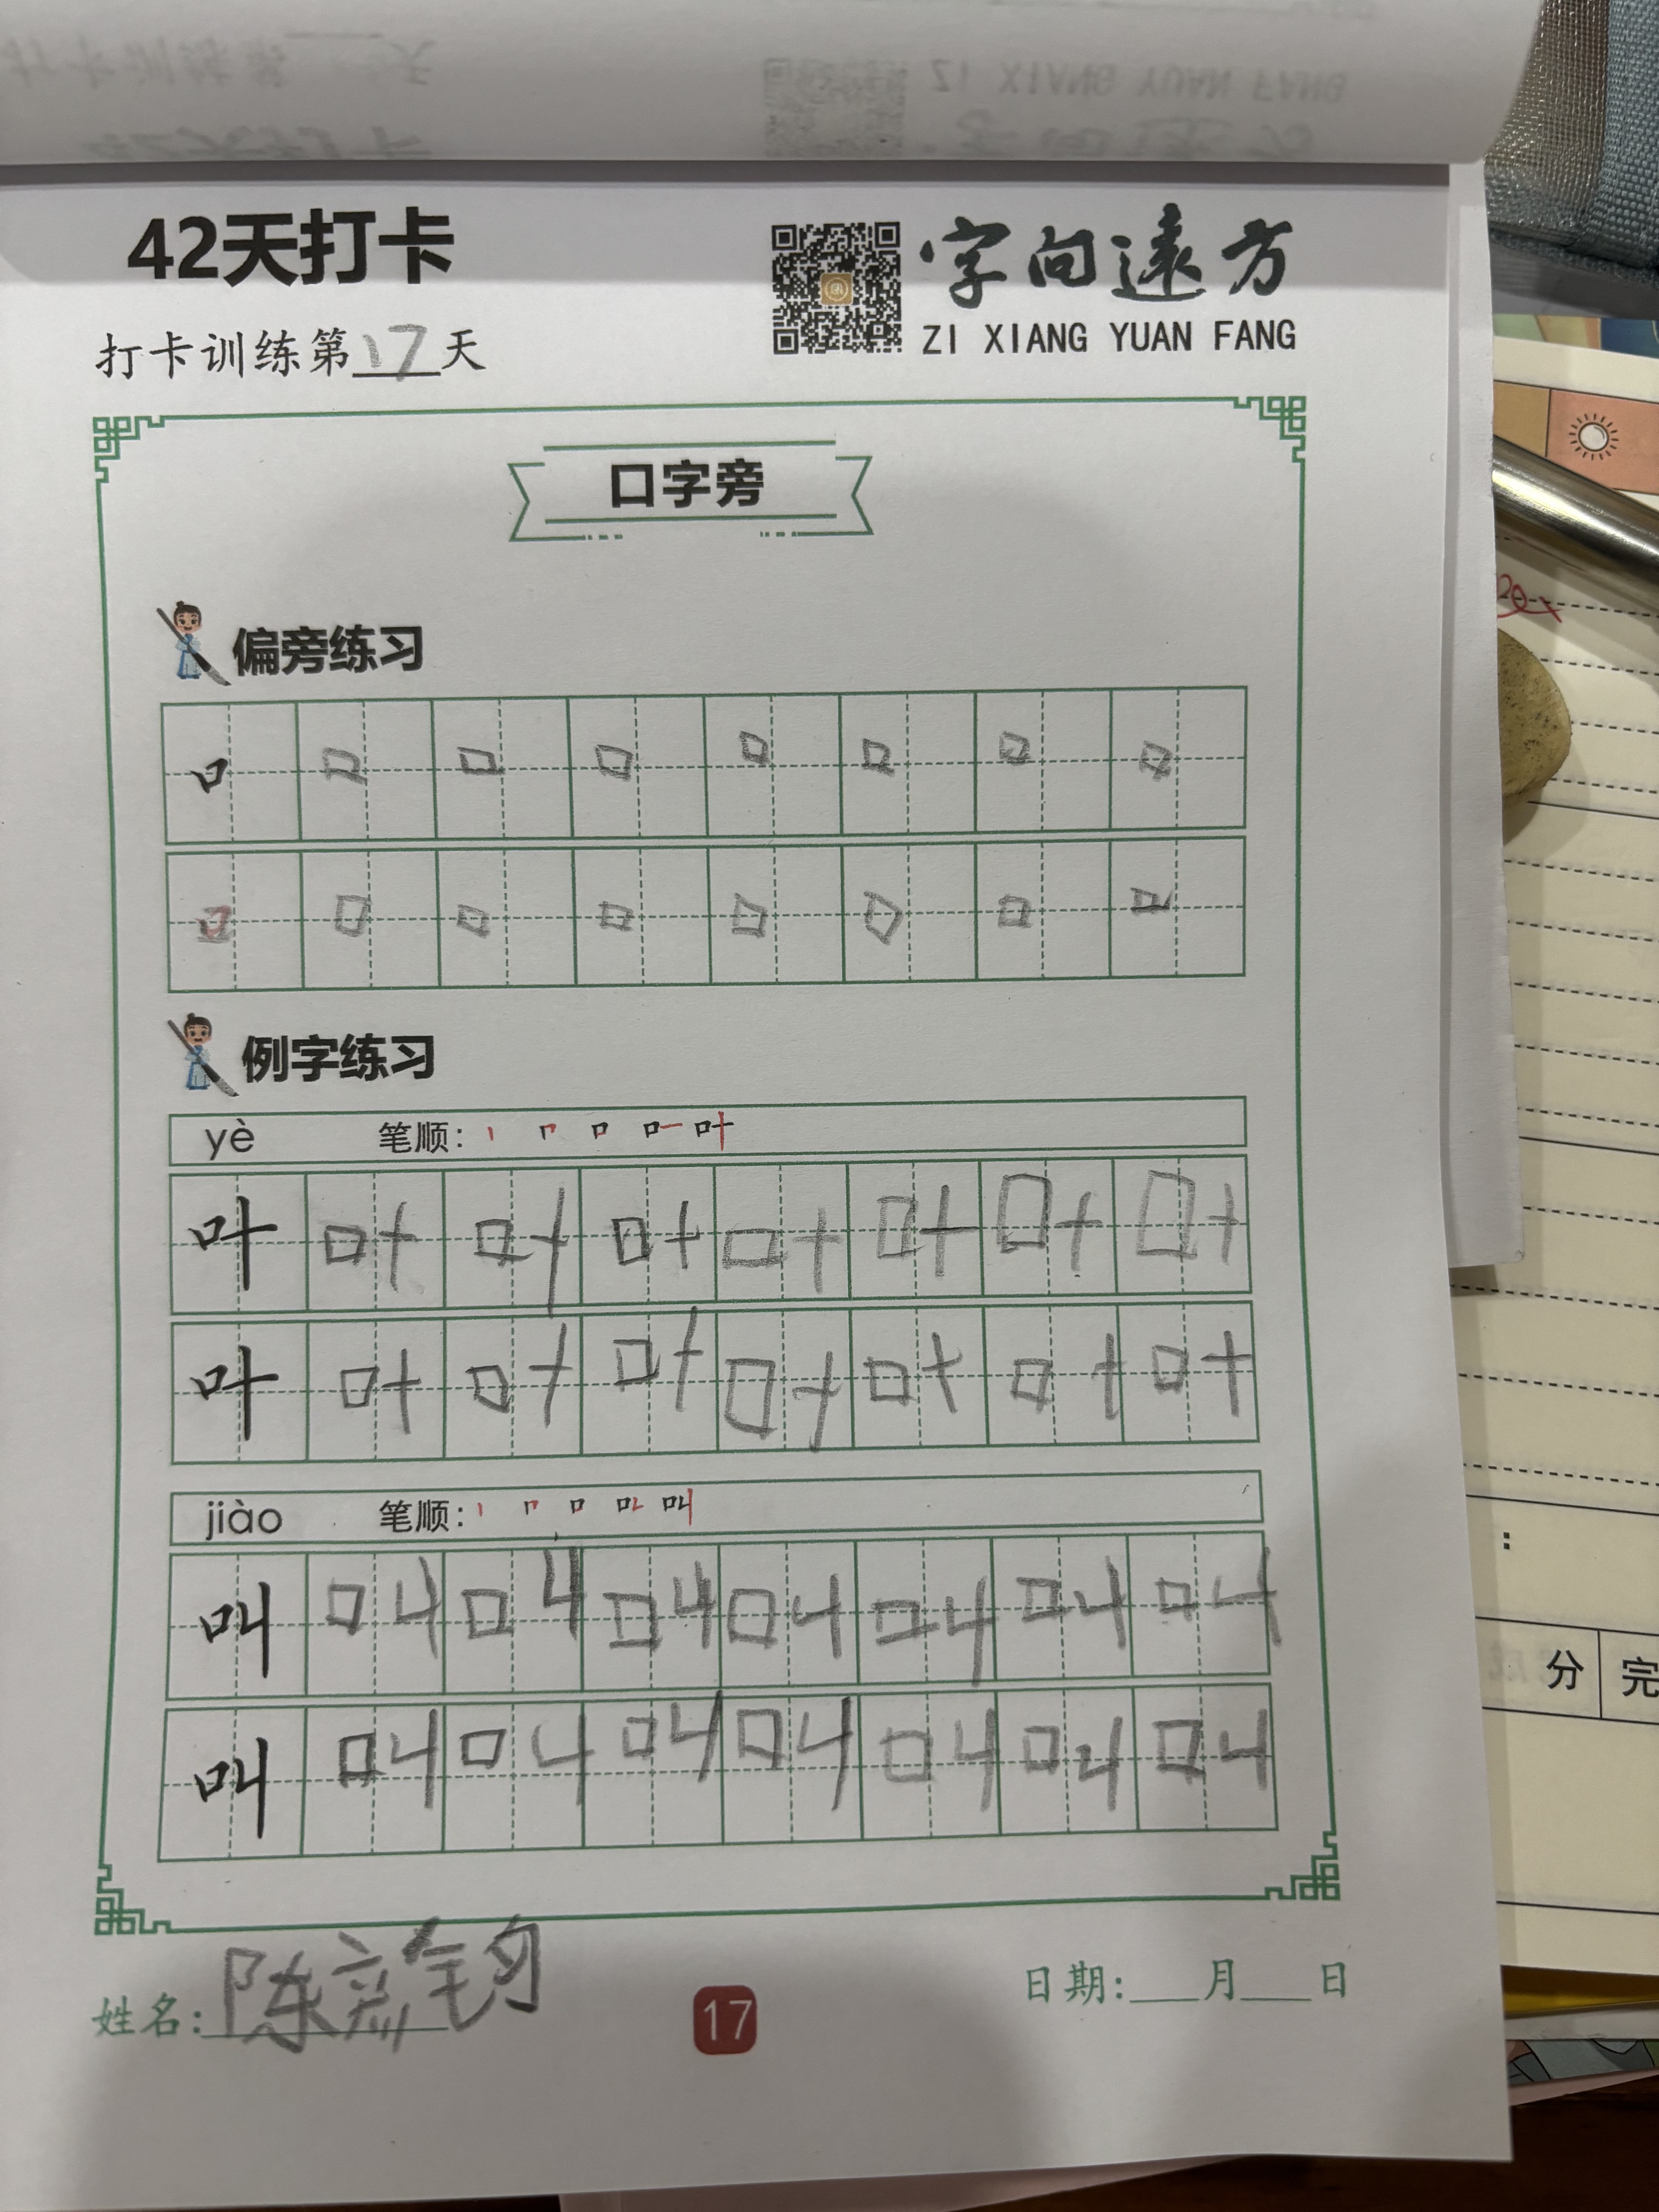 42天打卡
字向遠方
ZI XIANG YUAN FANG
打卡训练第17天
口字旁
偏旁练习
口 口 口 口 口 口 口 口
口 口 口 口 口 口 口 口
例字练习
yè 笔顺:
叶 叶 叶 叶 叶 叶 叶 叶
叶 叶 叶 叶 叶 叶 叶 叶
jiào 笔顺:
叫 叫 叫 叫 叫 叫 叫 叫
叫 叫 叫 叫 叫 叫 叫 叫
姓名:陈
17
日期:___月___日
分
完